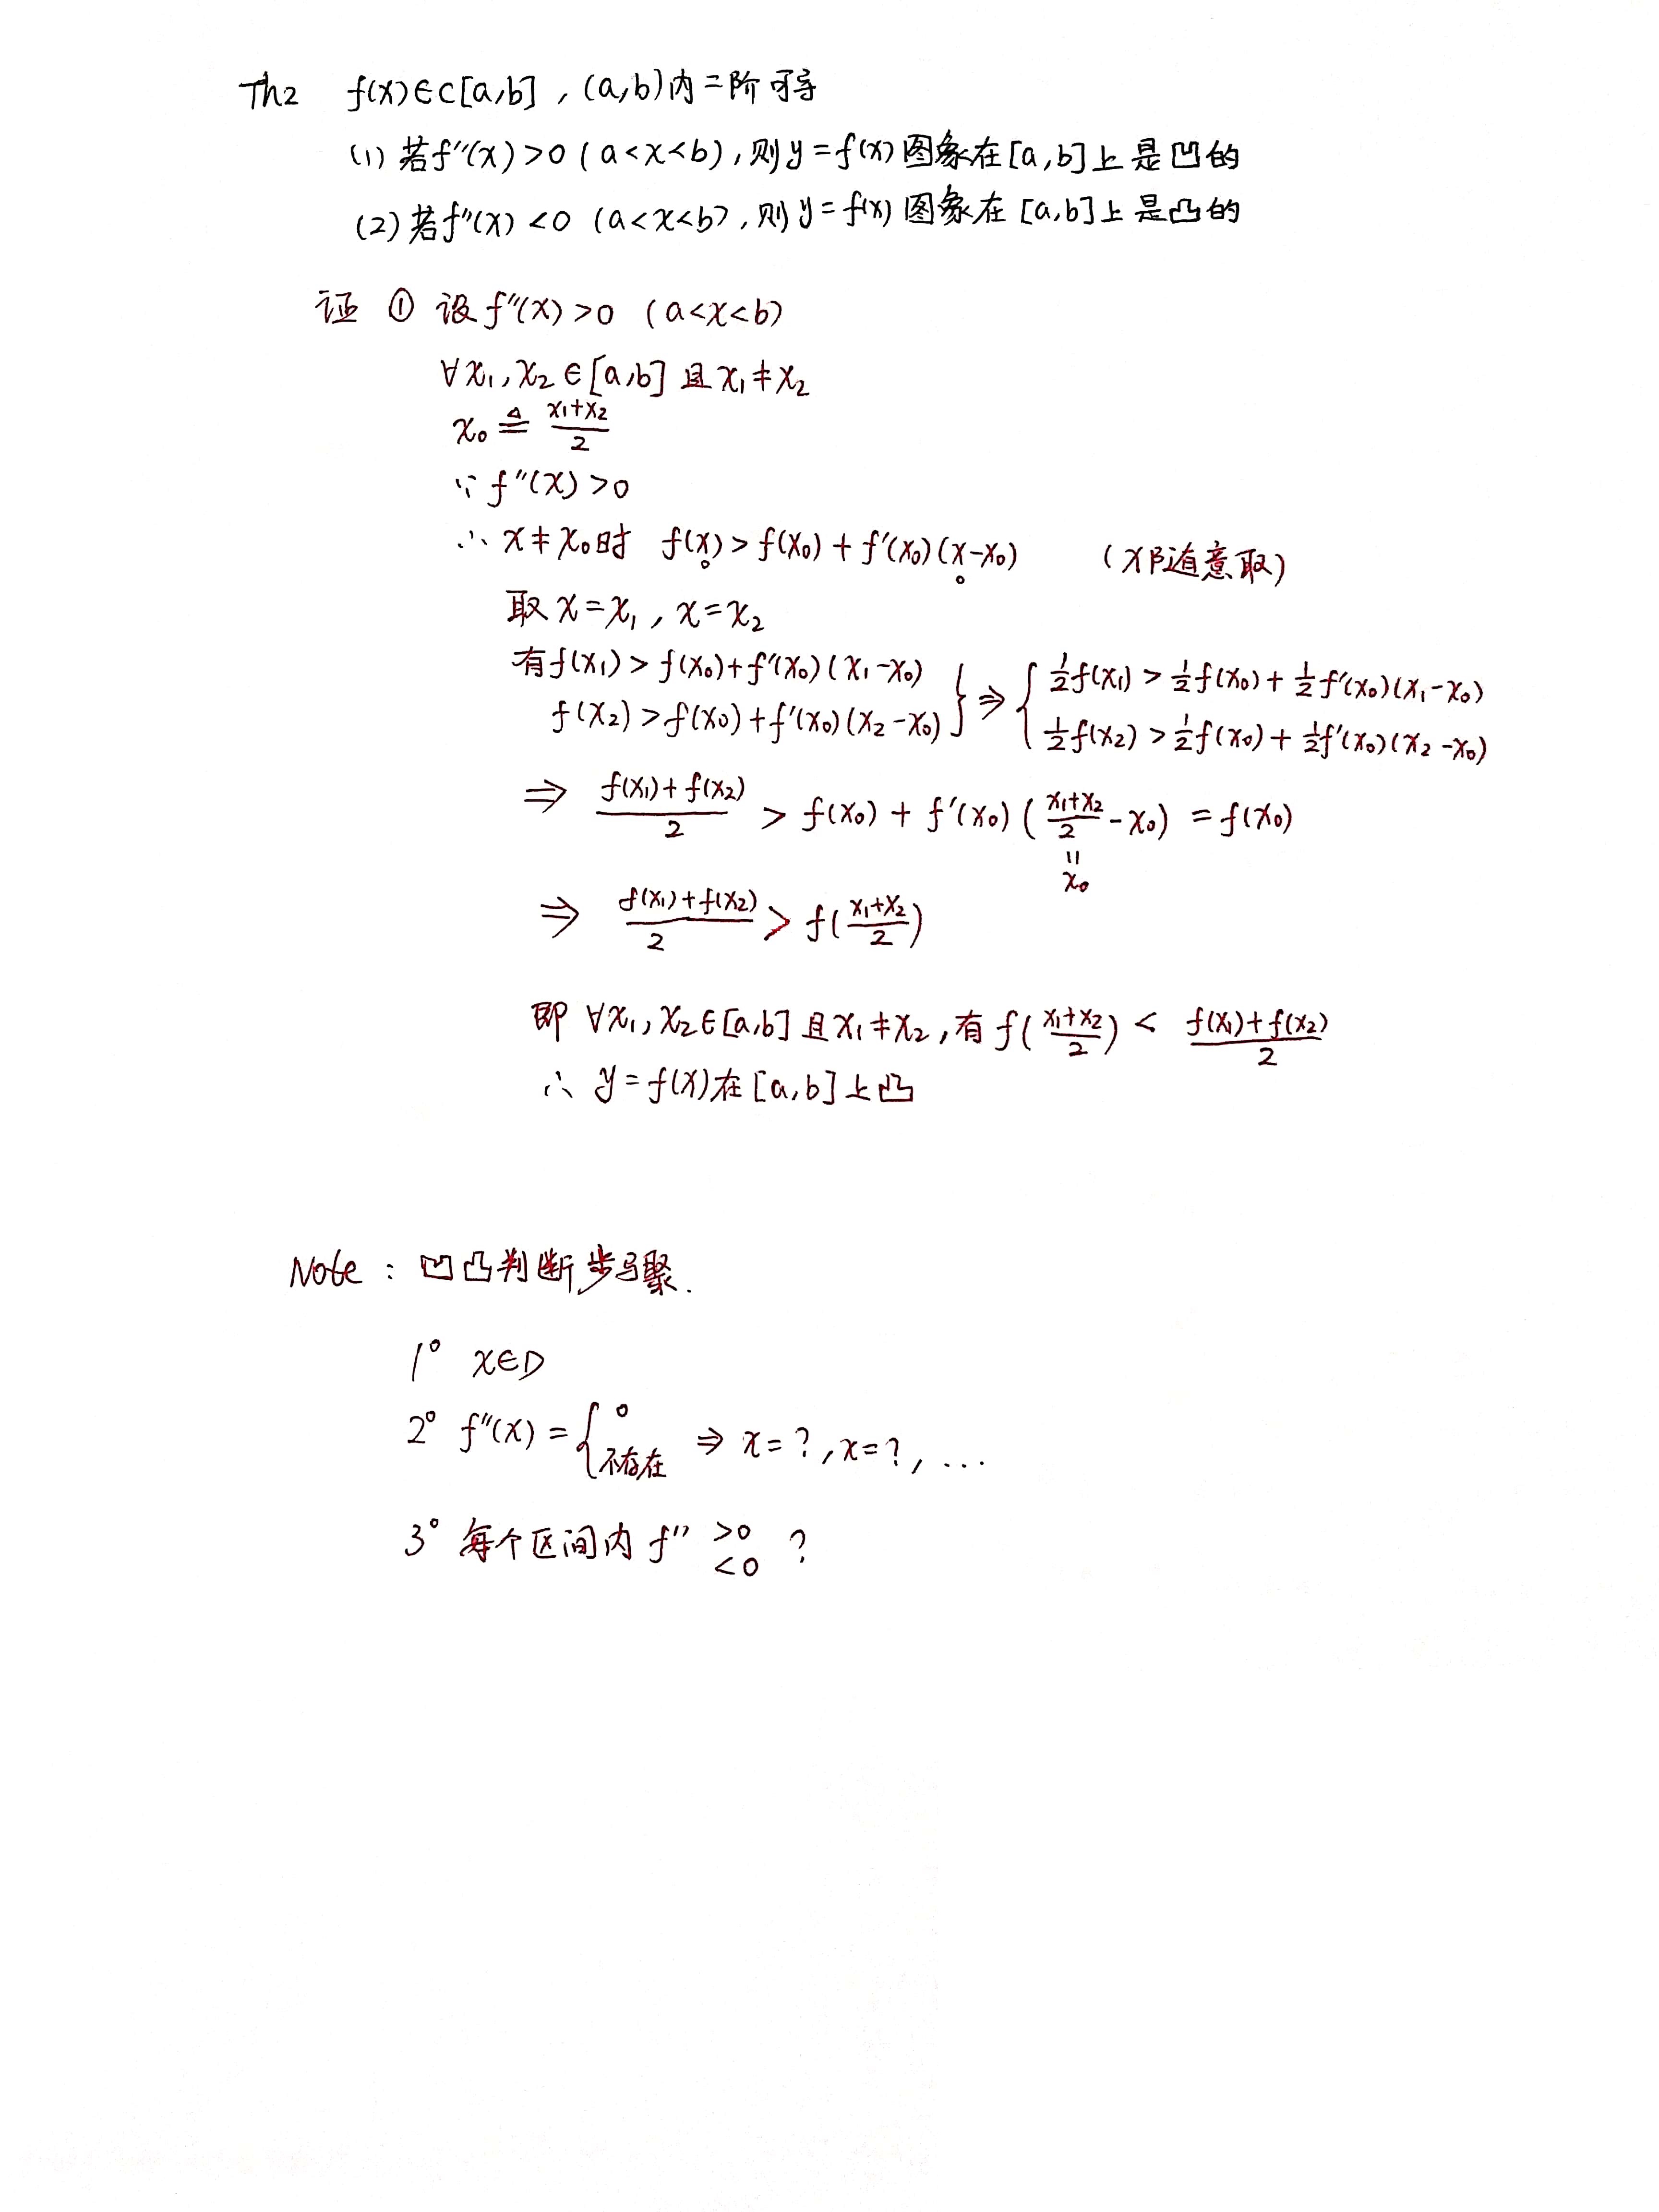 Th2 f(x)∈C[a,b] , (a,b)内二阶可导
(1) 若f''(x)>0 (a<x<b), 则y=f(x)图象在[a,b]上是凹的
(2) 若f''(x)<0 (a<x<b), 则y=f(x)图象在[a,b]上是凸的
证 ① 设f''(x)>0 (a<x<b)
∀x₁,x₂∈[a,b]且x₁≠x₂
x₀ ≜ (x₁+x₂)/2
∵ f''(x)>0
∴ x≠x₀时 f(x)>f(x₀)+f'(x₀)(x-x₀) (x即随意取)
取x=x₁, x=x₂
有f(x₁)>f(x₀)+f'(x₀)(x₁-x₀) } ⇒ { ½f(x₁)>½f(x₀)+½f'(x₀)(x₁-x₀)
f(x₂)>f(x₀)+f'(x₀)(x₂-x₀) ½f(x₂)>½f(x₀)+½f'(x₀)(x₂-x₀)
⇒ (f(x₁)+f(x₂))/2 > f(x₀)+f'(x₀)((x₁+x₂)/2-x₀) =f(x₀)
=
x₀
⇒ (f(x₁)+f(x₂))/2 > f((x₁+x₂)/2)
即 ∀x₁,x₂∈[a,b]且x₁≠x₂,有f((x₁+x₂)/2) < (f(x₁)+f(x₂))/2
∴ y=f(x)在[a,b]上凸
Note : 凹凸判断步骤.
1° x∈D
2° f''(x)={ 0 不存在 ⇒ x=?,x=?, ...
3° 每个区间内f'' >0 <0 ?